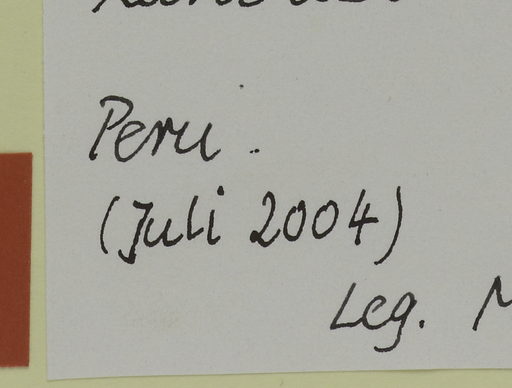 Peru.
(Juli 2004)
Leg.